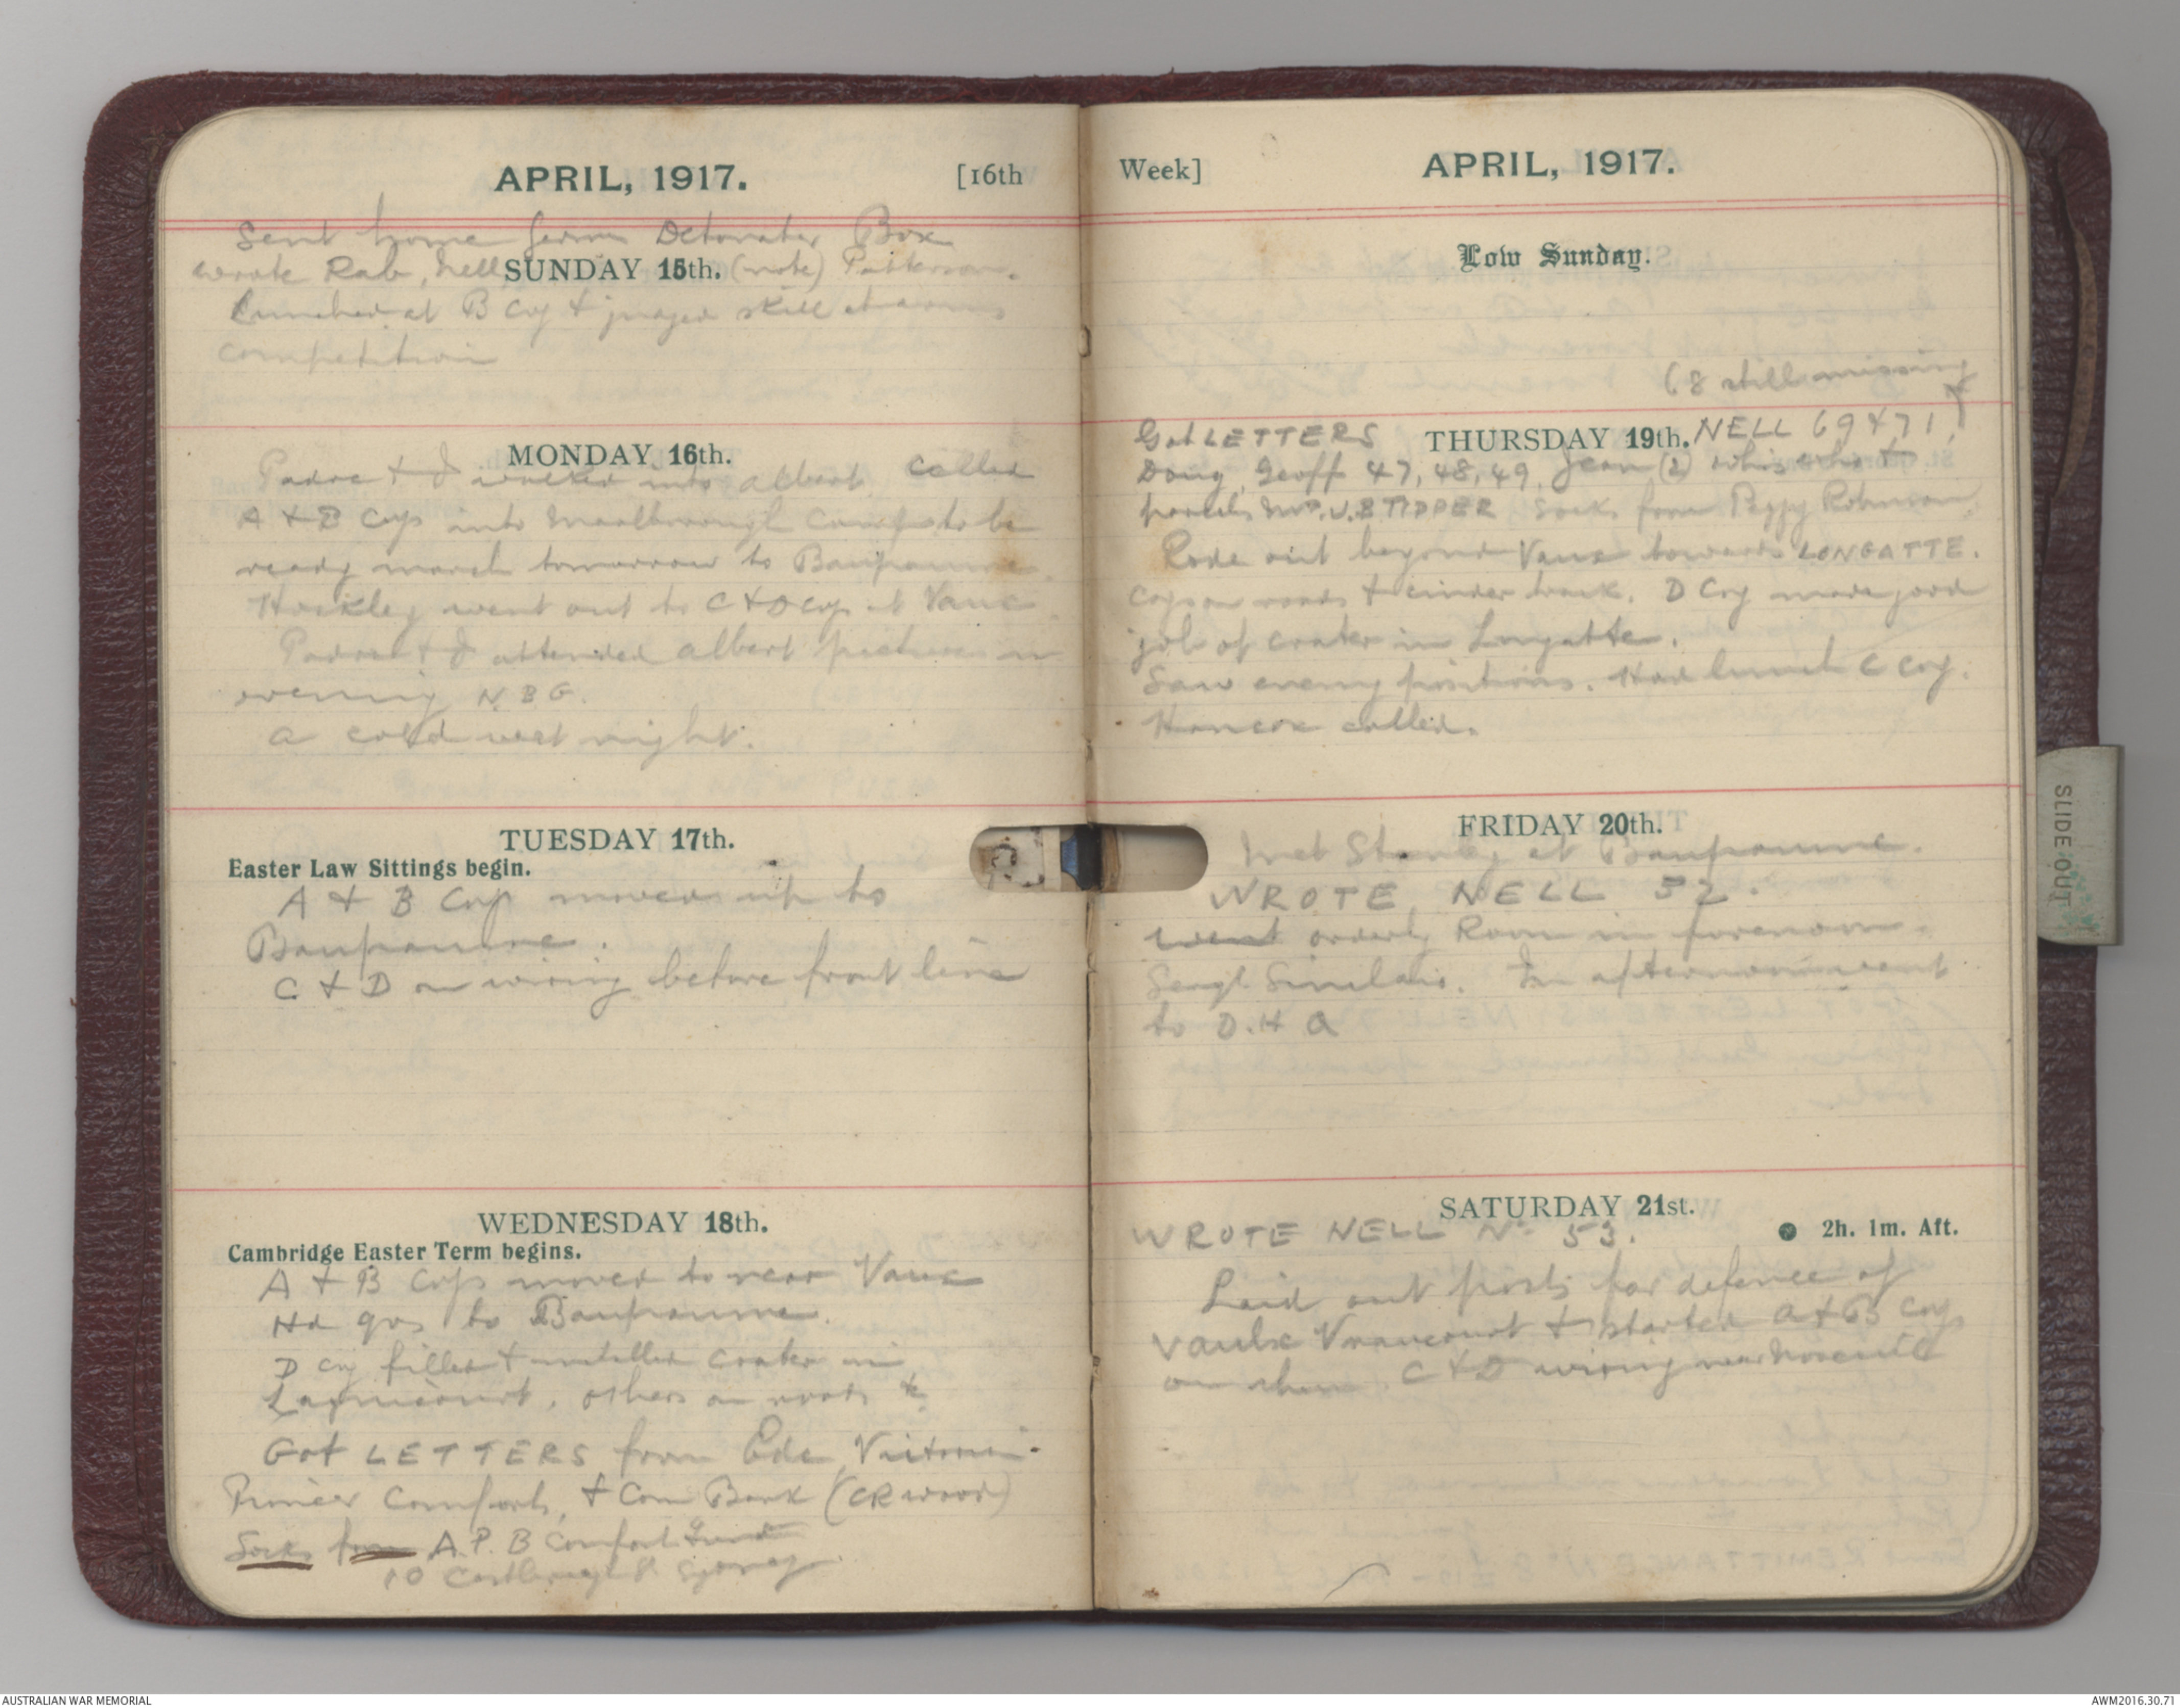 APRIL, 1917. [16th
Sent home German Detonator Box
wrote Rab, Nell, (note) Patterson.
SUNDAY 15th.
Lunched at B Coy & judged skill at arms
competition
MONDAY 16th.
Padre & I walked into Albert. Called
A & B Coys into camp to be
ready march tomorrow to Baupaume.
went out to C & D Coys at Vaux
Padre & I attended Albert pictures in
evening N B G.
A cold wet night.
TUESDAY 17th.
Easter Law Sittings begin.
A & B Coys moved up to
Baupaume.
C & D on wiring before front line
WEDNESDAY 18th.
Cambridge Easter Term begins.
A & B Coys moved to near Vaux
Hd qrs to Baupaume.
D Coy filled & metalled crater in
Lagnicourt, others on roads &
Got LETTERS from Victorian
Pioneer Comforts, & Com Bank (CR Wood)
Socks from A.P.B Comfort Fund
10 Castlereagh St Sydney
Week] APRIL, 1917.
Low Sunday.
(8 still missing
Got LETTERS NELL 69 & 71,
THURSDAY 19th.
Doug, Geoff 47, 48, 49, Jean (2)
parcels Mrs. J.B TIPPER Socks from Peggy Robinson.
Rode out beyond Vaux towards LONGATTE.
Coys on roads & cinder track. D Coy made good
job of crater in Longatte.
Saw enemy positions. Had lunch C Coy.
Hancox called.
FRIDAY 20th.
Met Stanley at Baupaume.
WROTE NELL 52.
went orderly Room in forenoon.
Sergt Sinclair. In afternoon went
to D.H Q
SATURDAY 21st.
WROTE NELL No 53.
2h. 1m. Aft.
Laid out posts for defence of
Vaulx Vraucourt & started A & B Coys
on them. C & D wiring near Noreuil
SLIDE OUT
AUSTRALIAN WAR MEMORIAL
AWM2016.30.71